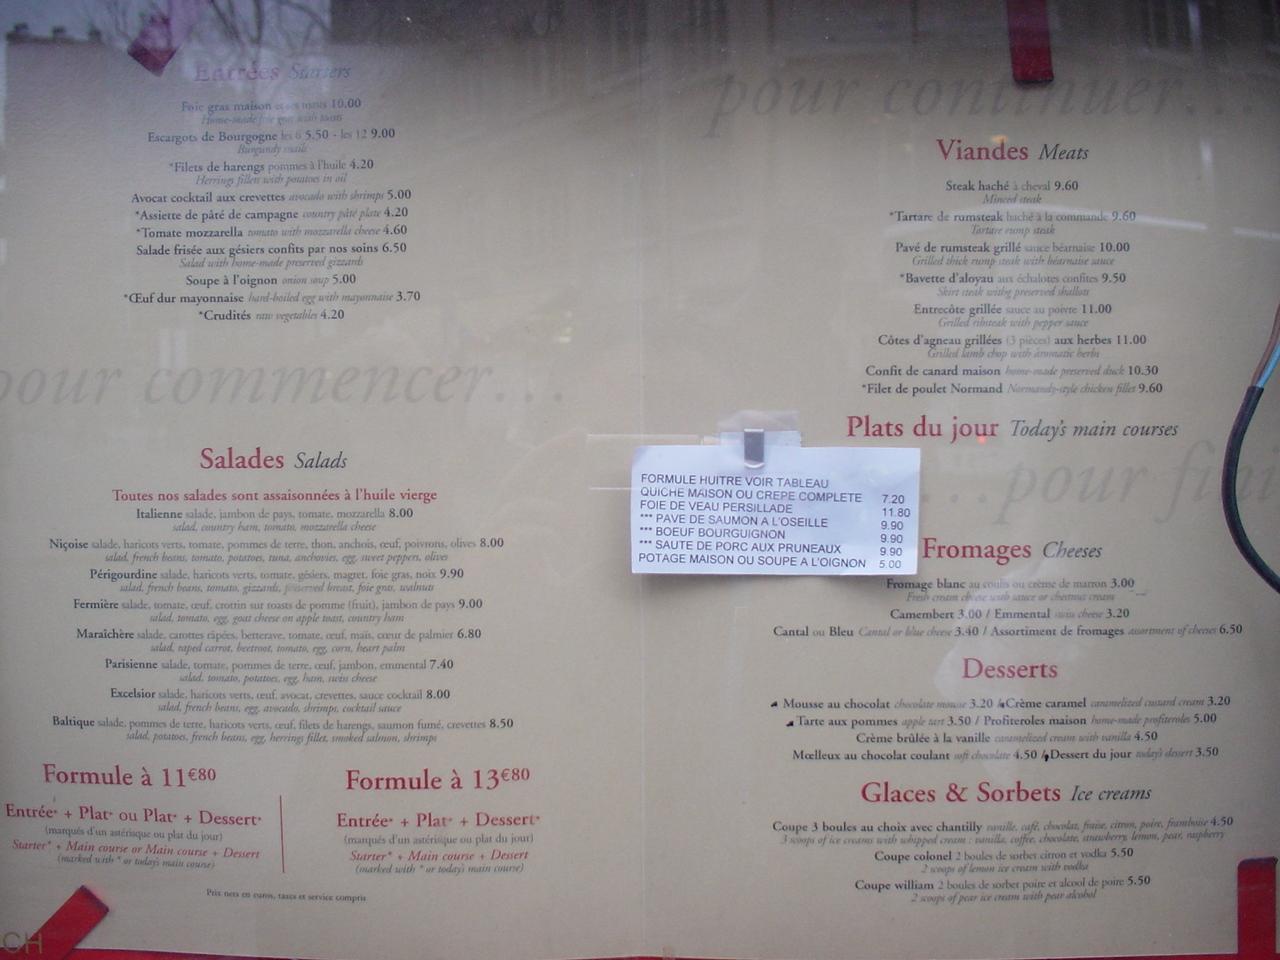 Entrées Starters
Foie gras maison et ses toasts 10.00
Home-made foie gras with toasts
Escargots de Bourgogne les 6 5.50 - les 12 9.00
Burgundy snails
*Filets de harengs pommes à l'huile 4.20
Herrings fillets with potatoes in oil
Avocat cocktail aux crevettes avocado with shrimps 5.00
*Assiette de pâté de campagne country pâté plate 4.20
*Tomate mozzarella tomato with mozzarella cheese 4.60
Salade frisée aux gésiers confits par nos soins 6.50
Salad with home-made preserved gizzards
Soupe à l'oignon onion soup 5.00
*Œuf dur mayonnaise hard-boiled egg with mayonnaise 3.70
*Crudités raw vegetables 4.20
pour commencer...
Salades Salads
Toutes nos salades sont assaisonnées à l'huile vierge
Italienne salade, jambon de pays, tomate, mozzarella 8.00
salad, country ham, tomato, mozzarella cheese
Niçoise salade, haricots verts, tomate, pommes de terre, thon, anchois, œuf, poivrons, olives 8.00
salad, french beans, tomato, potatoes, tuna, anchovies, egg, sweet peppers, olives
Périgourdine salade, haricots verts, tomate, gésiers, magret, foie gras, noix 9.90
salad, french beans, tomato, gizzards, preserved breast, foie gras, walnuts
Fermière salade, tomate, œuf, crottin sur toasts de pomme (fruit), jambon de pays 9.00
salad, tomato, egg, goat cheese on apple toast, country ham
Maraîchère salade, carottes râpées, betterave, tomate, œuf, maïs, cœur de palmier 6.80
salad, raped carrot, beetroot, tomato, egg, corn, heart palm
Parisienne salade, tomate, pommes de terre, œuf, jambon, emmental 7.40
salad, tomato, potatoes, egg, ham, swin cheese
Excelsior salade, haricots verts, œuf, avocat, crevettes, sauce cocktail 8.00
salad, french beans, egg, avocado, shrimps, cocktail sauce
Baltique salade, pommes de terre, haricots verts, œuf, filets de harengs, saumon fumé, crevettes 8.50
salad, potatoes, french beans, egg, herrings fillet, smoked salmon, shrimps
Formule à 11€80
Entrée* + Plat* ou Plat* + Dessert*
(marqués d'un astérisque ou plat du jour)
Starter* + Main course or Main course + Dessert
(marked with * or today's main course)
Formule à 13€80
Entrée* + Plat* + Dessert*
(marqués d'un astérisque ou plat du jour)
Starter* + Main course + Dessert
(marked with * or today's main course)
Prix nets en euros, taxes et service compris
CH
FORMULE HUITRE VOIR TABLEAU
QUICHE MAISON OU CREPE COMPLETE 7.20
FOIE DE VEAU PERSILLADE 11.80
*** PAVE DE SAUMON A L'OSEILLE 9.90
*** BOEUF BOURGUIGNON 9.90
*** SAUTE DE PORC AUX PRUNEAUX 9.90
POTAGE MAISON OU SOUPE A L'OIGNON 5.00
pour continuer...
Viandes Meats
Steak haché à cheval 9.60
Minced steak
*Tartare de rumsteak haché à la commande 9.60
Tartare rump steak
Pavé de rumsteak grillé sauce béarnaise 10.00
Grilled thick rump steak with béarnaise sauce
*Bavette d'aloyau aux échalotes confites 9.50
Skirt steak withg preserved shallots
Entrecôte grillée sauce au poivre 11.00
Grilled ribsteak with pepper sauce
Côtes d'agneau grillées (3 pièces) aux herbes 11.00
Grilled lamb chop with aromatic herbs
Confit de canard maison home-made preserved duck 10.30
*Filet de poulet Normand Normandy-style chicken fillet 9.60
Plats du jour Today's main courses
...pour fini
Fromages Cheeses
Fromage blanc au coulis ou crème de marron 3.00
Fresh cream cheese with sauce or chestnut cream
Camembert 3.00 / Emmental swin cheese 3.20
Cantal ou Bleu Cantal or blue cheese 3.40 / Assortiment de fromages assortment of cheeses 6.50
Desserts
Mousse au chocolat chocolate mousse 3.20 / Crème caramel caramelized custard cream 3.20
Tarte aux pommes apple tart 3.50 / Profiteroles maison home-made profiteroles 5.00
Crème brûlée à la vanille caramelized cream with vanilla 4.50
Mœlleux au chocolat coulant soft chocolate 4.50 / Dessert du jour today's dessert 3.50
Glaces & Sorbets Ice creams
Coupe 3 boules au choix avec chantilly vanille, café, chocolat, fraise, citron, poire, framboise 4.50
3 scoops of ice creams with whipped cream : vanilla, coffee, chocolate, strawberry, lemon, pear, raspberry
Coupe colonel 2 boules de sorbet citron et vodka 5.50
2 scoops of lemon ice cream with vodka
Coupe william 2 boules de sorbet poire et alcool de poire 5.50
2 scoops of pear ice cream with pear alcohol